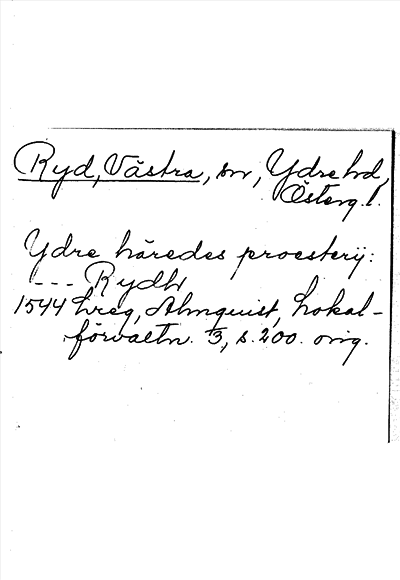 Ryd, Västra, sn, Ydre hd,
Österg. l.
Ydre häredes proesterij:
--- Rydh
1544 hreg, Almquist, Lokal-
förvaltn. 3, s. 200. orig.